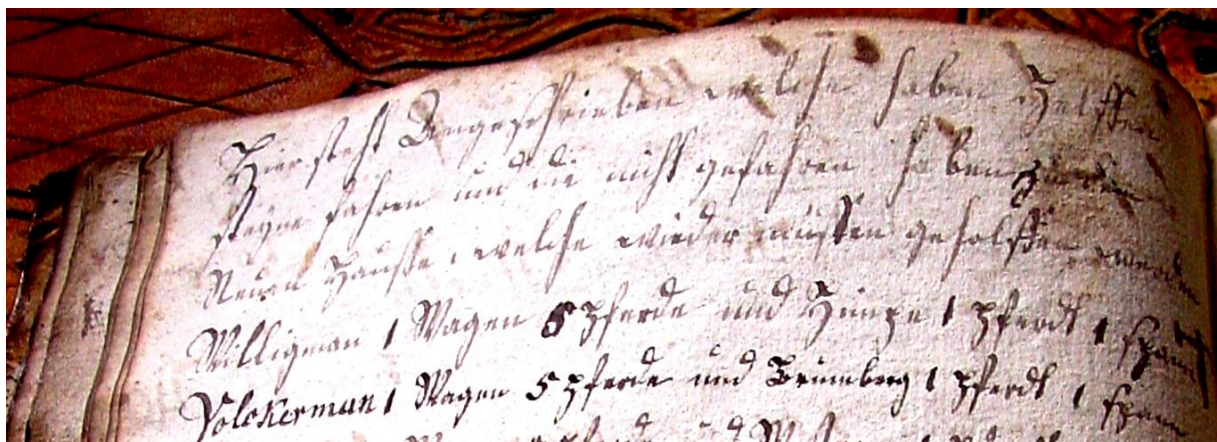 Hier steht Angeschrieben welche haben Helffen
steyne fahren und die nicht gefahren haben zu dem
Neuen Hausse, welche wieder müssen geholffen werden
Willigman 1 Wagen 5 pferde und Hinze 1 pferdt 1 span
Volckerman 1 Wagen 5 pferde und Brumberg 1 pferdt 1 span